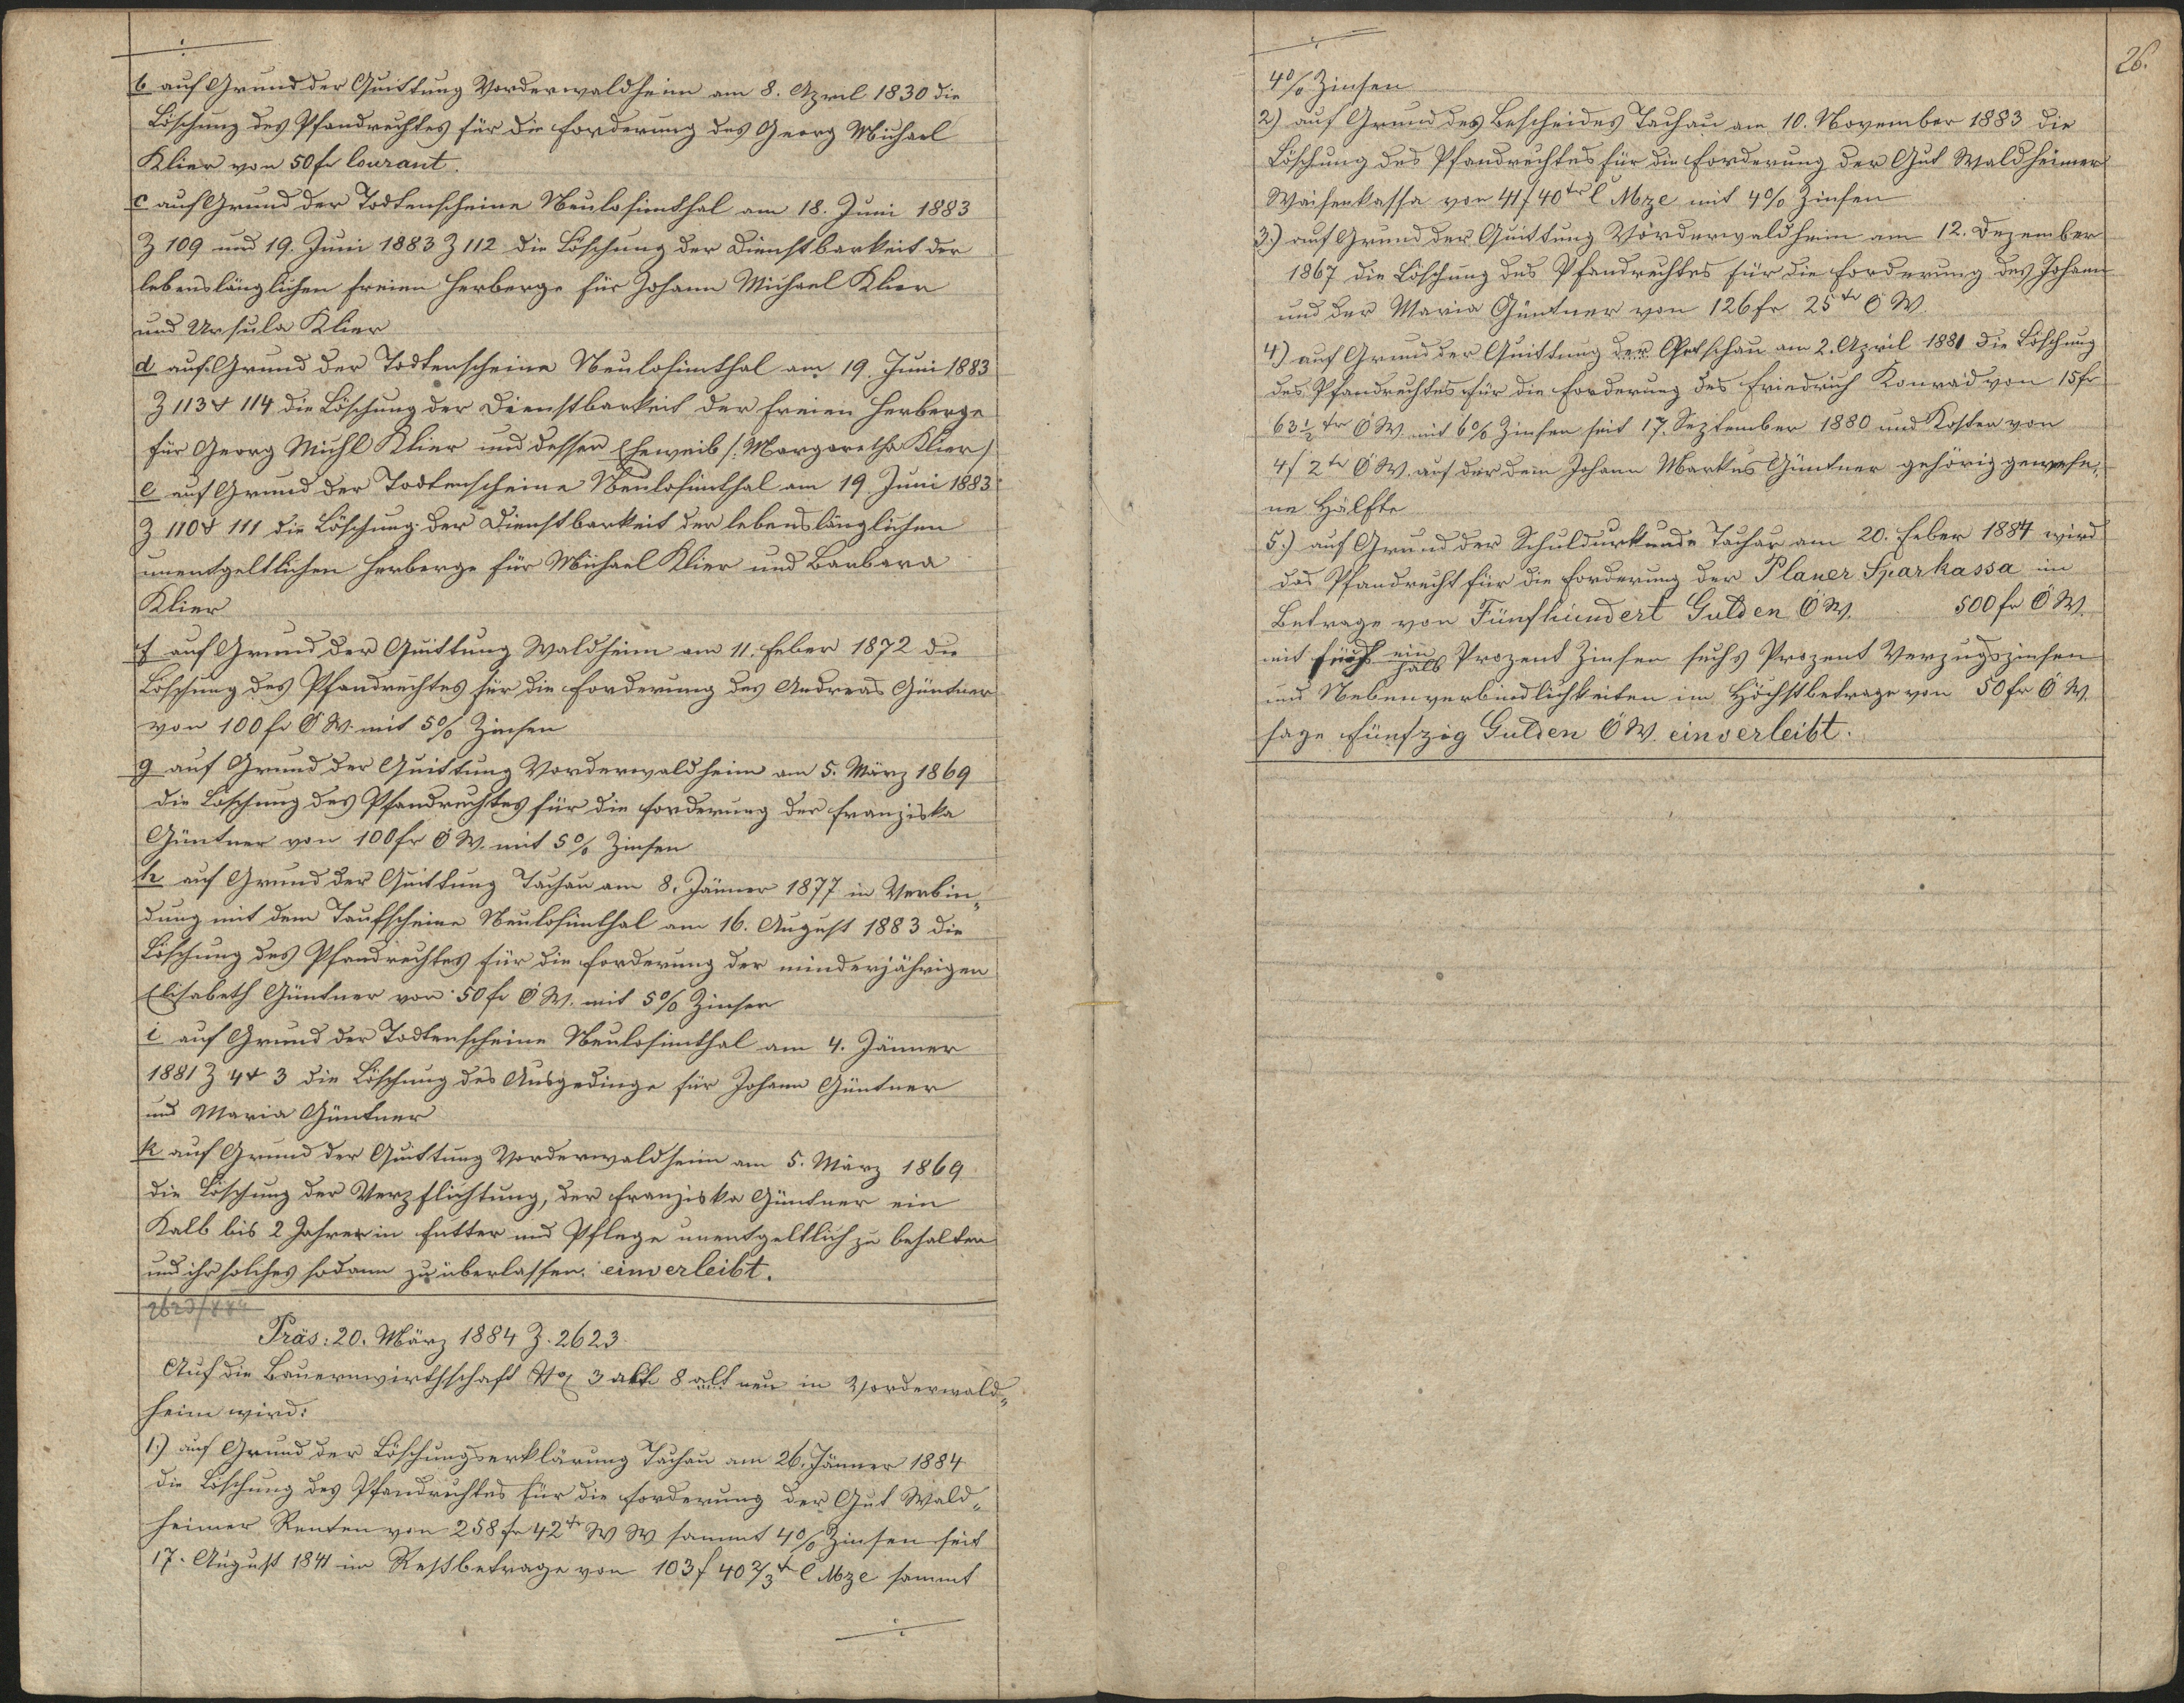 b auf Grund der Quittung Vorderwaldheim am 8. April 1830 die
Löschung des Pfandrechtes für die Forderung des Georg Michael
Klier von 50 fr Courant.
c auf Grund der Todtenscheine Neulosimthal am 18. Juni 1883
Z 109 und 19. Juni 1883 Z 112 die Löschung der Dienstbarkeit der
lebenslänglichen freien Herberge für Johann Michael Klier
und Ursula Klier
d auf Grund der Todtenscheine Neulosimthal am 19. Juni 1883
Z 113 & 114 die Löschung der Dienstbarkeit der freien Herberge
für Georg Michl Klier und dessen Eheweib /: Margaretha Klier /
e auf Grund der Todtenscheine Neulosimthal am 19 Juni 1883
Z 110 & 111 die Löschung der Dienstbarkeit der lebenslänglichen
unentgeltlichen Herberge für Michael Klier und Barbara
Klier
f auf Grund der Quittung Waldheim am 11. Feber 1872 die
Löschung des Pfandrechtes für die Forderung des Andreas Güntner
von 100 fr Ö W. mit 5% Zinsen
g auf Grund der Quittung Vorderwaldheim am 5. März 1869
die Löschung des Pfandrechtes für die Forderung der Franziska
Güntner von 100 fr Ö W. mit 5% Zinsen
h auf Grund der Quittung Tachau am 8. Jänner 1877 in Verbin„
dung mit dem Taufscheine Neulosimthal am 16. August 1883 die
Löschung des Pfandrechtes für die Forderung der minderjährigen
Elisabeth Güntner von 50 fr Ö W. mit 5% Zinsen
i auf Grund der Todtenscheine Neulosimthal am 4. Jänner
1881 Z 4 & 3 die Löschung des Ausgedinge für Johann Güntner
und Maria Güntner
k auf Grund der Quittung Vorderwaldheim am 5. März 1869
die Löschung der Verpflichtung, der Franziska Güntner ein
Kalb bis 2 Jahren in Futter und Pflege unentgeltlich zu behalten
und ihr solches sodann zu überlassen. einverleibt.
2623/884
Präs: 20. März 1884 Z. 2623.
Auf die Bauernwirthschaft No 3 alt 8 neu in Vorderwald„
heim wird:
1.) auf Grund der Löschungserklärung Tachau am 26. Jänner 1884
die Löschung des Pfandrechtes für die Forderung der Gut Wald„
heimer Renten von 258 fr 42 kr W W sammt 4% Zinsen seit
17. August 1841 im Restbetrage von 103 f 40 2/3 kr C Mze sammt
26.
4% Zinsen
2) auf Grund des Bescheides Tachau am 10. November 1883 die
Löschung des Pfandrechtes für die Forderung der Gut Waldheimer
Waisenkassa von 41 f 40 kr C Mze mit 4% Zinsen
3.) auf Grund der Quittung Vorderwaldheim am 12. Dezember
1867 die Löschung des Pfandrechtes für die Forderung des Johann
und der Maria Güntner von 126 fr 25 kr Ö W.
4) auf Grund der Quittung der Petschau am 2. April 1881 die Löschung
des Pfandrechtes für die Forderung des Friedrich Konrad von 15 fr
63 1/2 kr Ö W. mit 6% Zinsen seit 17. September 1880 und Kosten von
4 f 2 kr Ö W. auf der dem Johann Markus Güntner gehörig gewese„
ne Hälfte
5.) auf Grund der Schuldurkunde Tachau am 20. Feber 1884 wird
das Pfandrecht für die Forderung der Planer Sparkassa im
Betrage von Fünfhundert Gulden Ö W. 500 fr Ö W.
mit fünf ein halb Prozent Zinsen sechs Prozent Verzugszinsen
und Nebenverbindlichkeiten im Höchstbetrage von 50 fr Ö W.
sage Fünfzig Gulden Ö W. einverleibt.